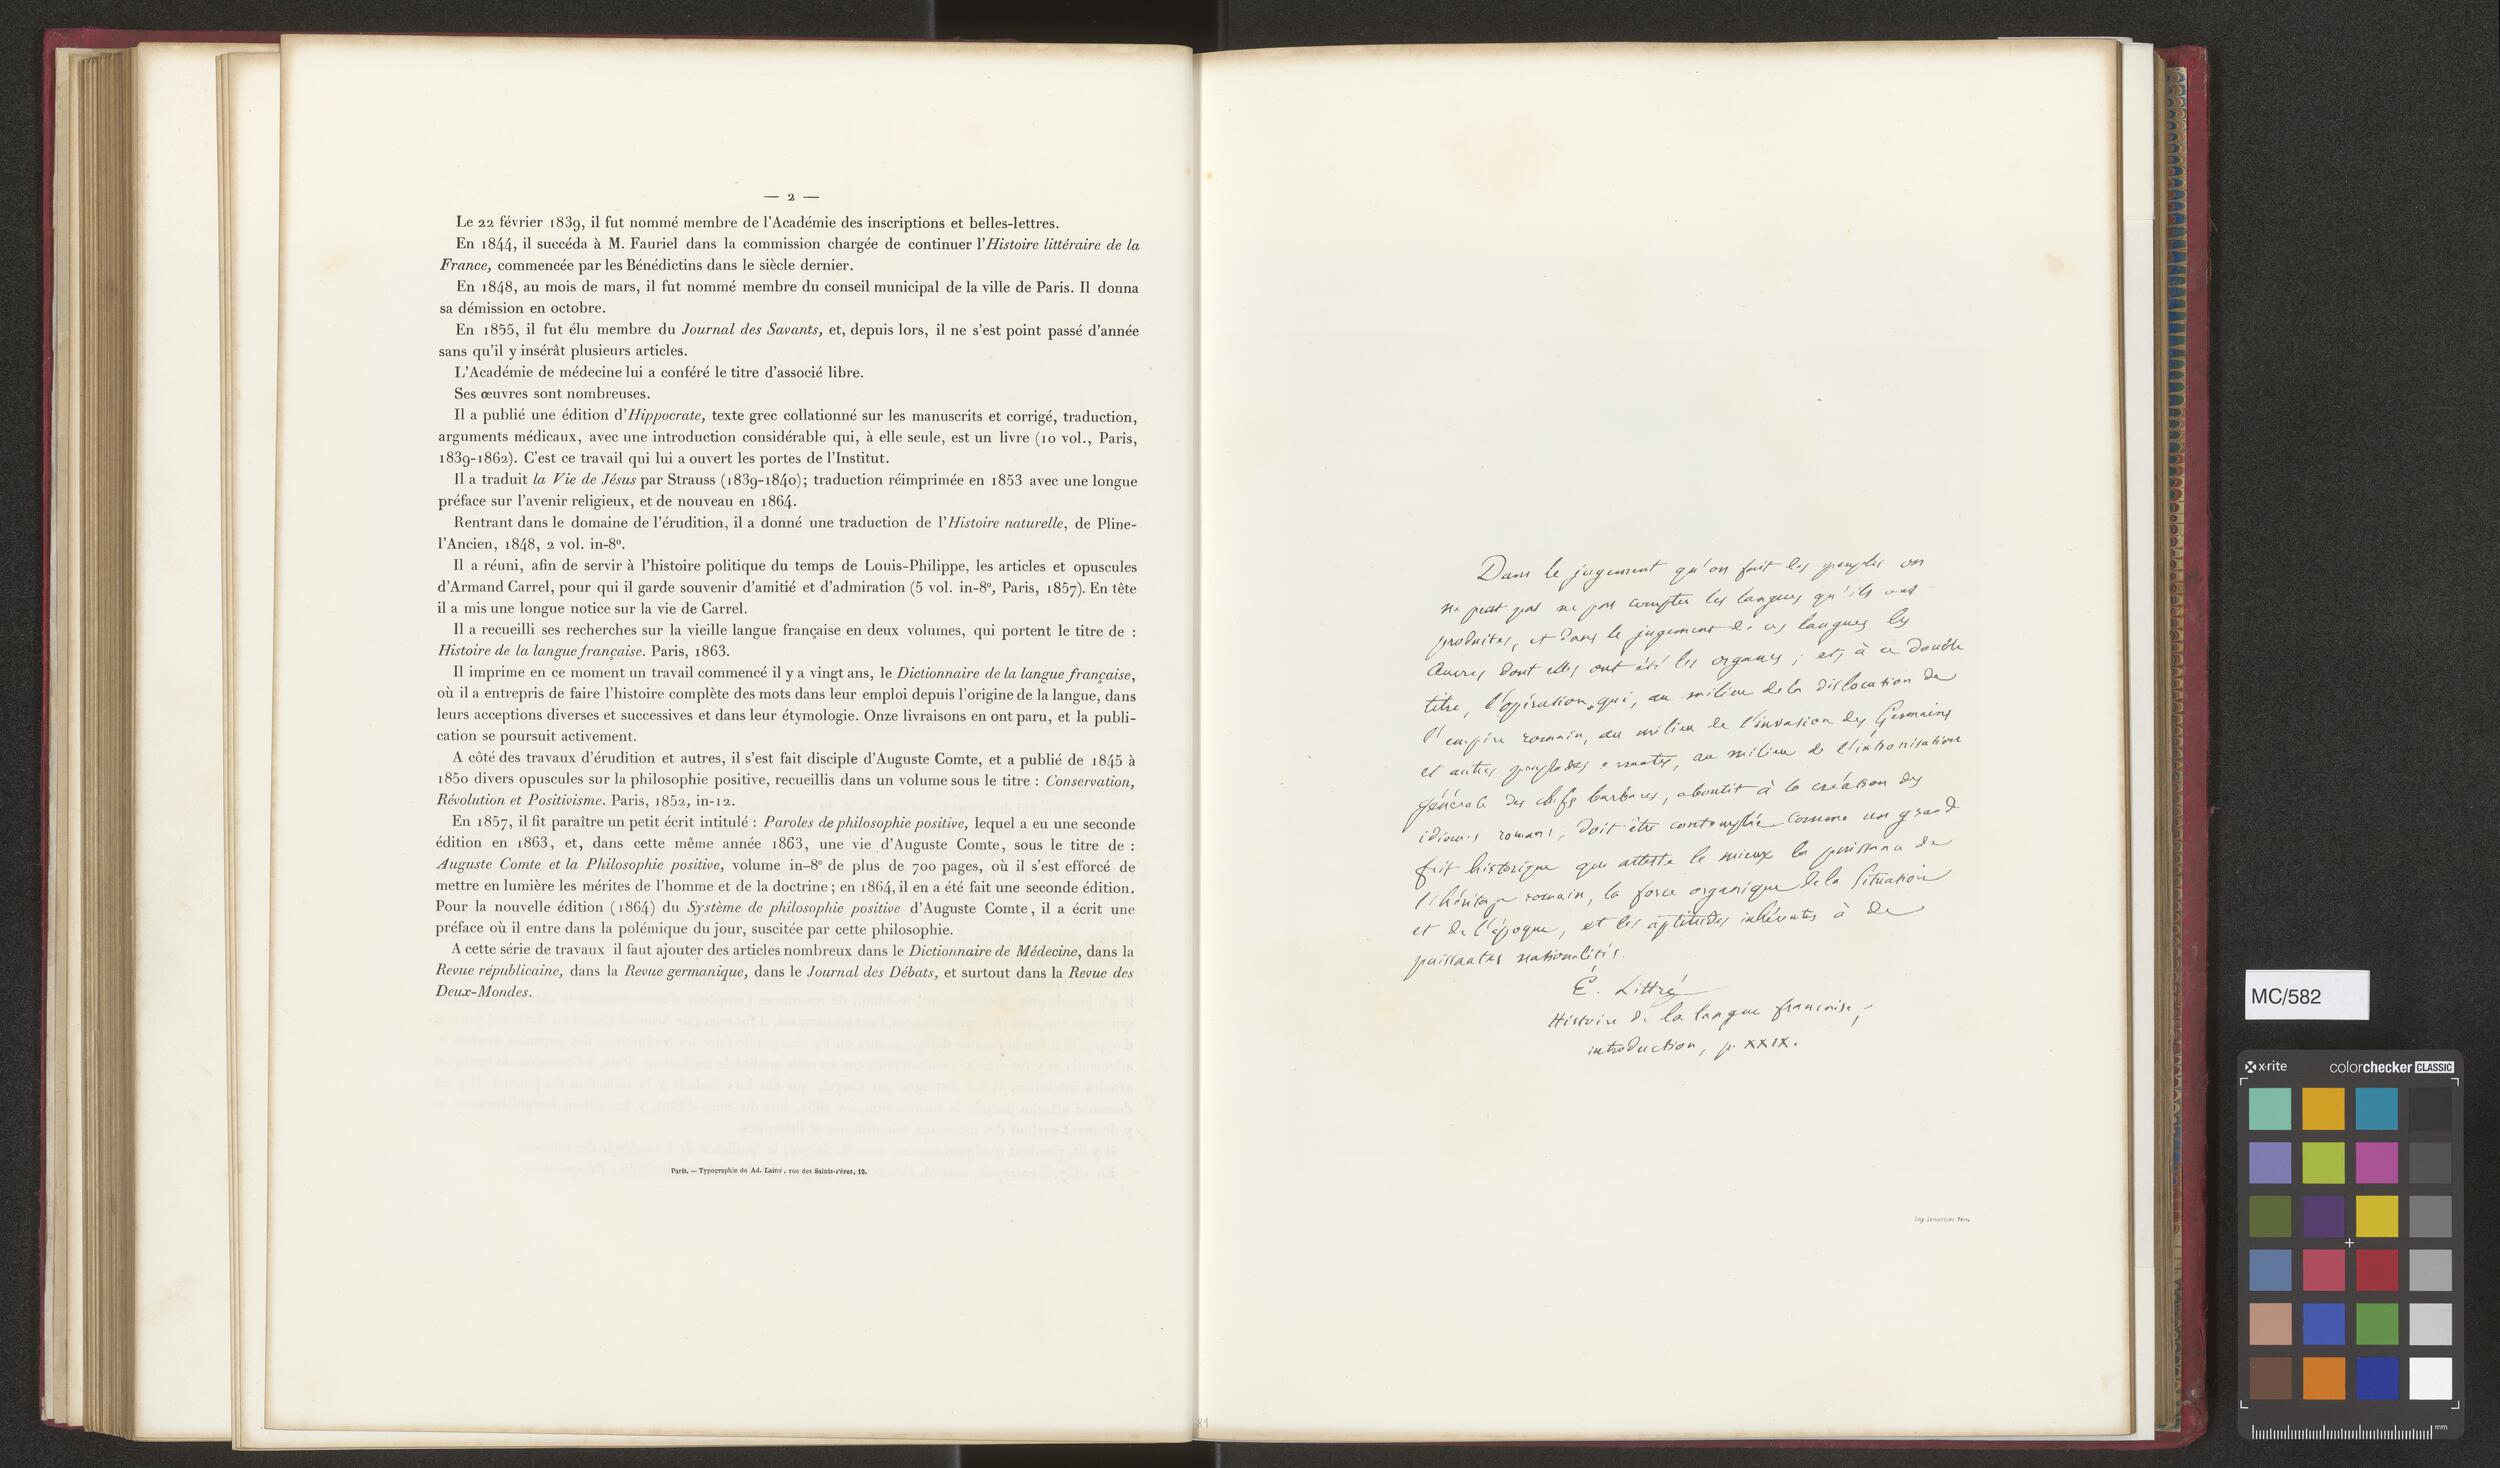 — 2 —
Le 22 février 1839, il fut nommé membre de l'Académie des inscriptions et belles-lettres.
En 1844, il succéda à M. Fauriel dans la commission chargée de continuer l'Histoire littéraire de la
France, commencée par les Bénédictins dans le siècle dernier.
En 1848, au mois de mars, il fut nommé membre du conseil municipal de la ville de Paris. Il donna
sa démission en octobre.
En 1855, il fut élu membre du Journal des Savants, et, depuis lors, il ne s'est point passé d'année
sans qu'il y insérât plusieurs articles.
L'Académie de médecine lui a conféré le titre d'associé libre.
Ses œuvres sont nombreuses.
Il a publié une édition d'Hippocrate, texte grec collationné sur les manuscrits et corrigé, traduction,
arguments médicaux, avec une introduction considérable qui, à elle seule, est un livre (10 vol., Paris,
1839-1862). C'est ce travail qui lui a ouvert les portes de l'Institut.
Il a traduit la Vie de Jésus par Strauss (1839-1840); traduction réimprimée en 1853 avec une longue
préface sur l'avenir religieux, et de nouveau en 1864.
Rentrant dans le domaine de l'érudition, il a donné une traduction de l'Histoire naturelle, de Pline-
l'Ancien, 1848, 2 vol. in-8º.
Il a réuni, afin de servir à l'histoire politique du temps de Louis-Philippe, les articles et opuscules
d'Armand Carrel, pour qui il garde souvenir d'amitié et d'admiration (5 vol. in-8º, Paris, 1857). En tête
il a mis une longue notice sur la vie de Carrel.
Il a recueilli ses recherches sur la vieille langue française en deux volumes, qui portent le titre de :
Histoire de la langue française. Paris, 1863.
Il imprime en ce moment un travail commencé il y a vingt ans, le Dictionnaire de la langue française,
où il a entrepris de faire l'histoire complète des mots dans leur emploi depuis l'origine de la langue, dans
leurs acceptions diverses et successives et dans leur étymologie. Onze livraisons en ont paru, et la publi-
cation se poursuit activement.
A côté des travaux d'érudition et autres, il s'est fait disciple d'Auguste Comte, et a publié de 1845 à
1850 divers opuscules sur la philosophie positive, recueillis dans un volume sous le titre : Conservation,
Révolution et Positivisme. Paris, 1852, in-12.
En 1857, il fit paraître un petit écrit intitulé : Paroles de philosophie positive, lequel a eu une seconde
édition en 1863, et, dans cette même année 1863, une vie d'Auguste Comte, sous le titre de :
Auguste Comte et la Philosophie positive, volume in-8º de plus de 700 pages, où il s'est efforcé de
mettre en lumière les mérites de l'homme et de la doctrine ; en 1864, il en a été fait une seconde édition.
Pour la nouvelle édition (1864) du Système de philosophie positive d'Auguste Comte, il a écrit une
préface où il entre dans la polémique du jour, suscitée par cette philosophie.
A cette série de travaux il faut ajouter des articles nombreux dans le Dictionnaire de Médecine, dans la
Revue républicaine, dans la Revue germanique, dans le Journal des Débats, et surtout dans la Revue des
Deux-Mondes.
Paris. — Typographie de Ad. Lainé, rue des Saints-Pères, 19.
Dans le jugement qu'on fait des peuples on
ne peut pas ne pas compter les langues qu'ils ont
produites, et dans le jugement de ces langues les
œuvres dont elles ont été les organes ; et, à ce double
titre, l'opération qui, au milieu de la dislocation de
l'empire romain, au milieu de l'invasion des Germains
et autres peuplades errantes, au milieu de l'intronisation
générale des chefs barbares, aboutit à la création des
idiomes romans, doit être contemplée comme un grand
fait historique qui atteste le mieux la puissance de
l'héritage romain, la force organique de la situation
et de l'époque, et les aptitudes inhérentes à de
puissantes nationalités.
É. Littré
Histoire de la langue française,
introduction, p. XXIX.
Imp. Lemercier Paris
MC/582
x·rite colorchecker CLASSIC
mm